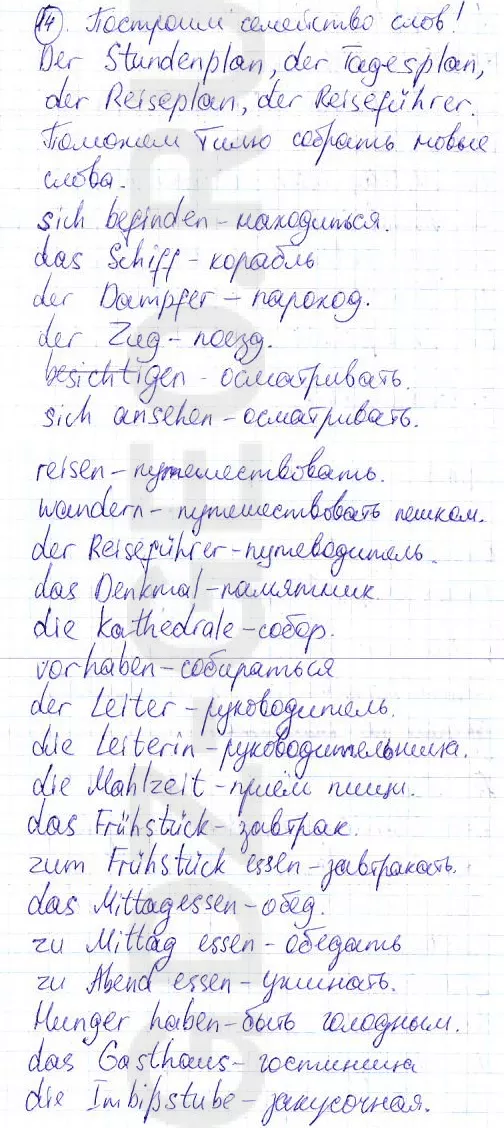 14. Построим семейство слов!
Der Stundenplan, der Tagesplan,
der Reiseplan, der Reiseführer.
Поможем Тилю собрать новые
слова.
sich befinden - находиться.
das Schiff - корабль
der Dampfer - пароход.
der Zug - поезд.
besichtigen - осматривать.
sich ansehen - осматривать.
reisen - путешествовать.
wandern - путешествовать пешком.
der Reiseführer - путеводитель.
das Denkmal - памятник
die Kathedrale - собор.
vorhaben - собираться
der Leiter - руководитель.
die Leiterin - руководительница.
die Mahlzeit - приём пищи.
das Frühstück - завтрак.
zum Frühstück essen - завтракать.
das Mittagessen - обед.
zu Mittag essen - обедать
zu Abend essen - ужинать.
Hunger haben - быть голодным.
das Gasthaus - гостиница
die Imbißstube - закусочная.